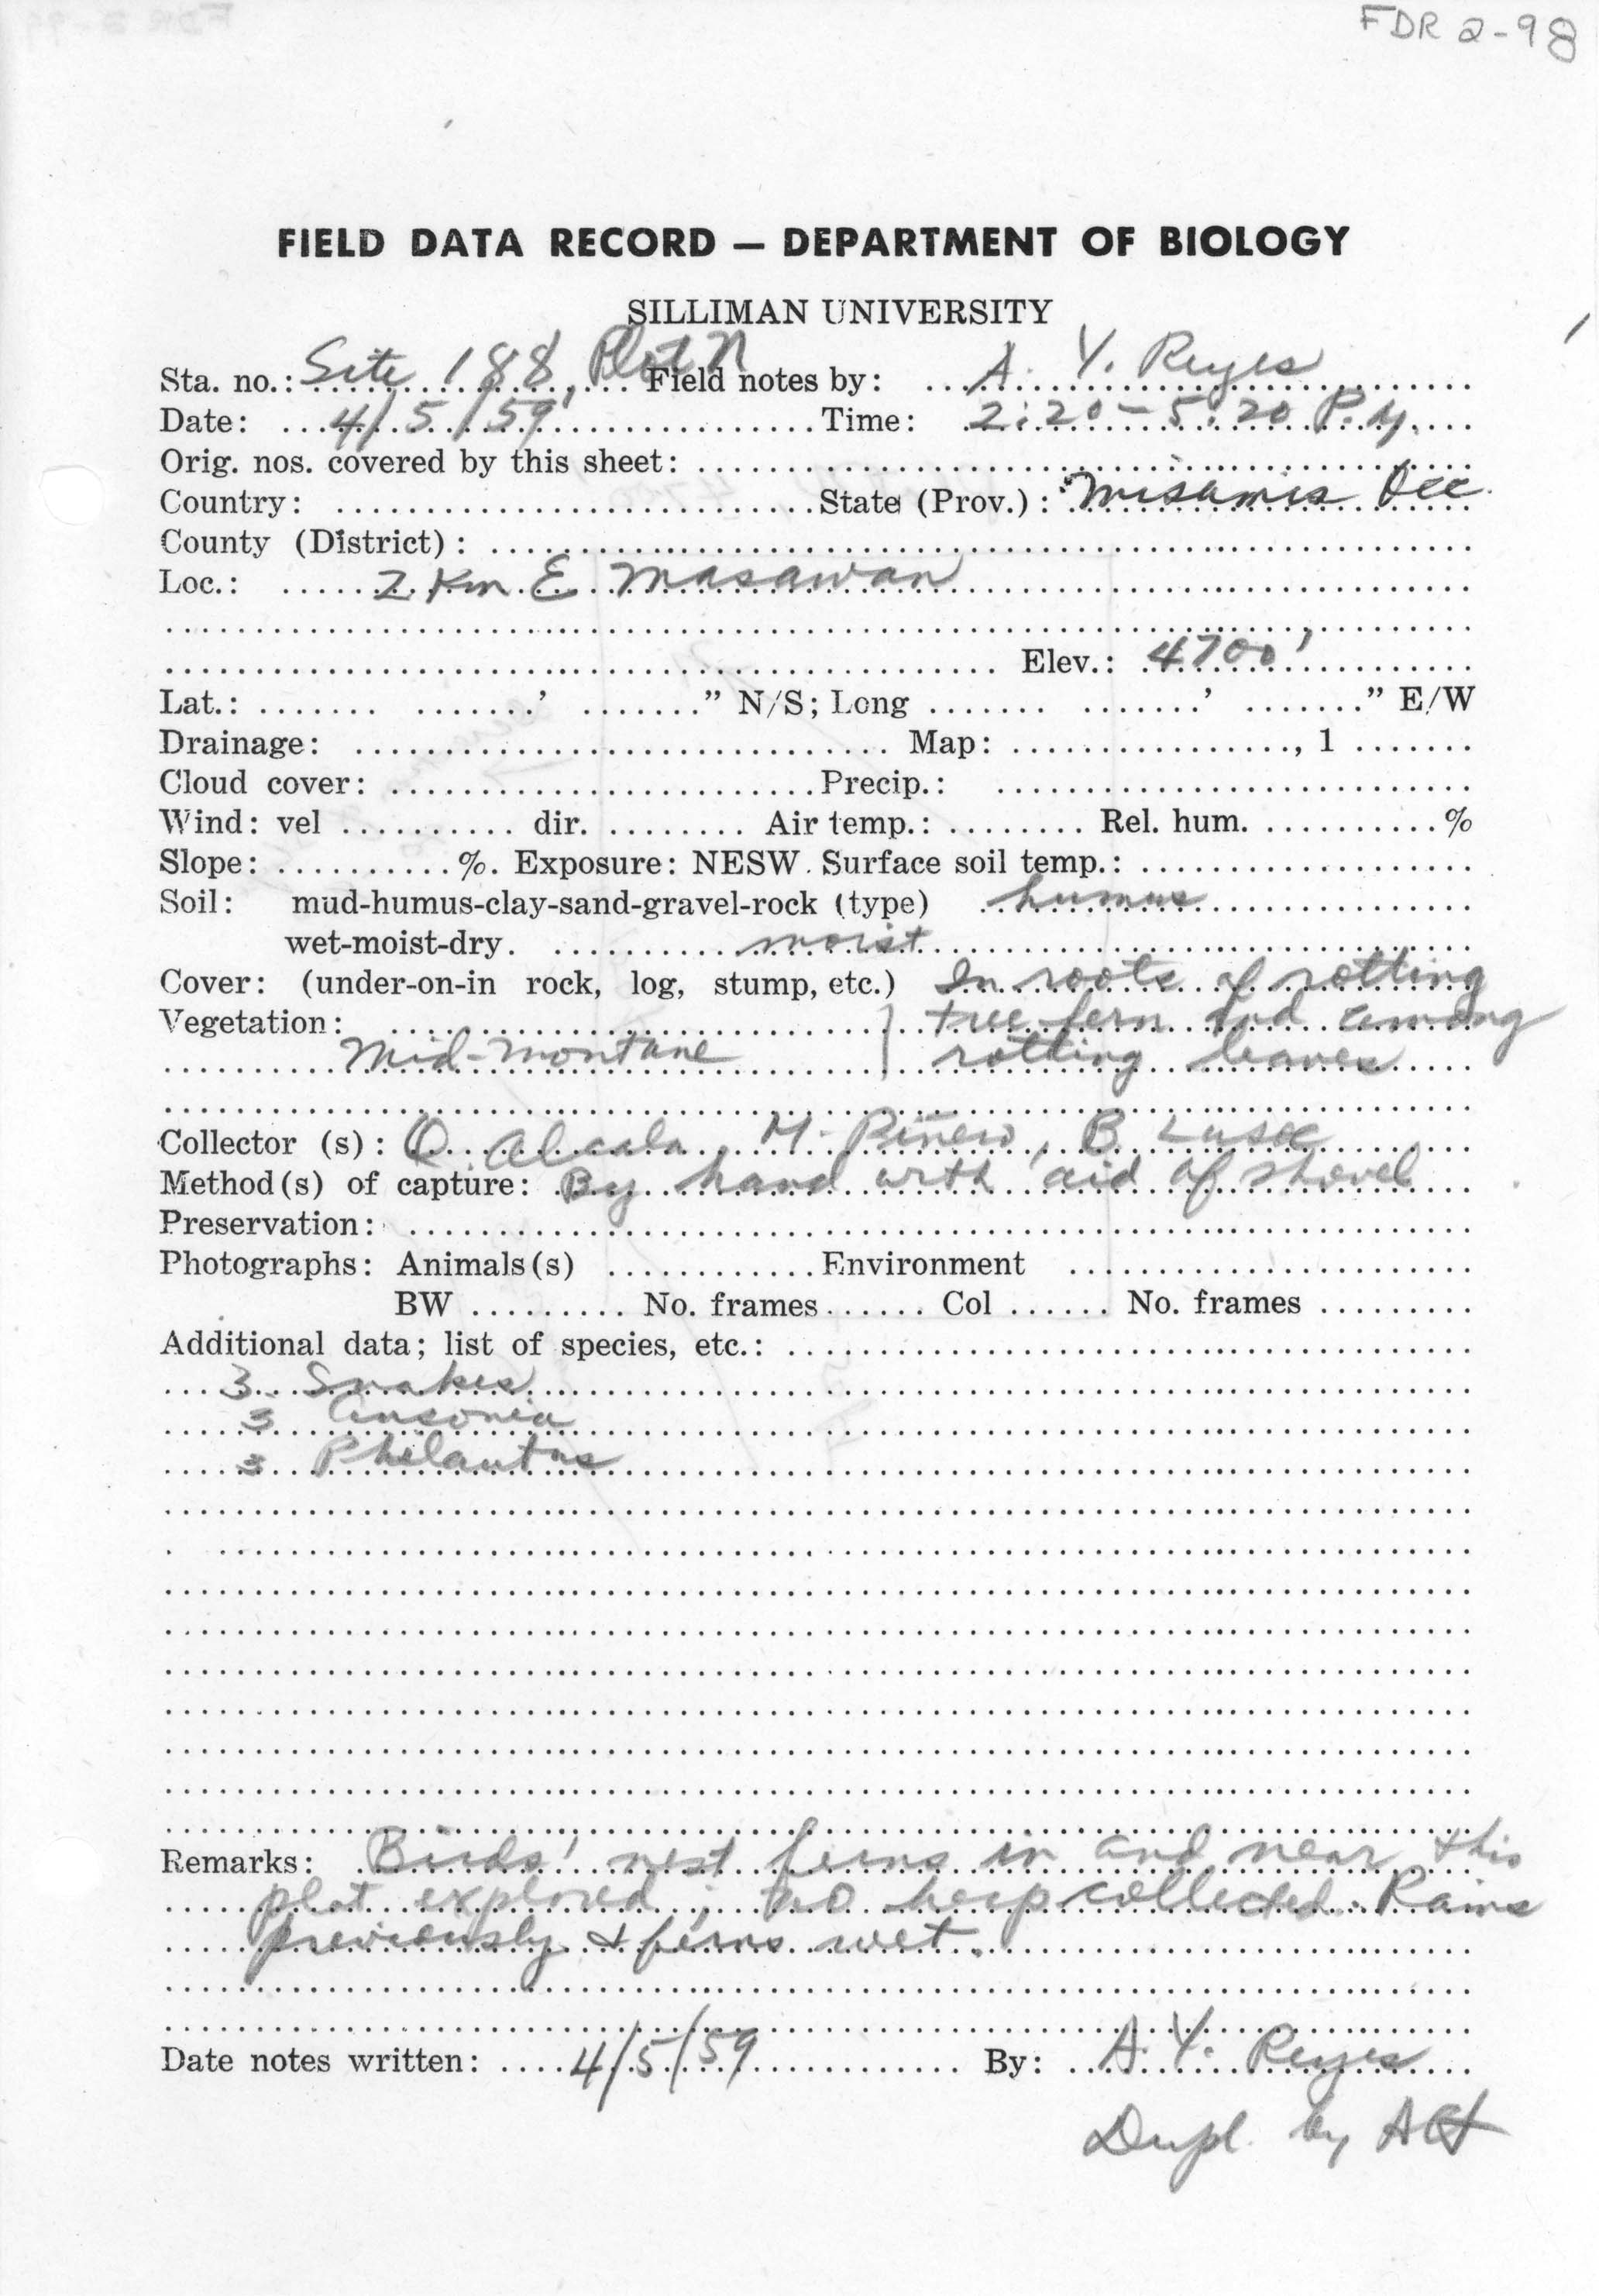 FDR 2-98
FIELD DATA RECORD — DEPARTMENT OF BIOLOGY
SILLIMAN UNIVERSITY
Sta. no.: Site 188, Plot N Field notes by: A. Y. Reyes
Date: 4/5/59 Time: 2:20-5:20 P.M.
Orig. nos. covered by this sheet:
Country: State (Prov.): Misamis Occ.
County (District):
Loc.: 2 Km E Masawan
Elev.: 4700'
Lat.: ' " N/S; Long ' " E/W
Drainage: Map: , 1
Cloud cover: Precip.:
Wind: vel dir. Air temp.: Rel. hum. %
Slope: %. Exposure: NESW. Surface soil temp.:
Soil: mud-humus-clay-sand-gravel-rock (type) humus
wet-moist-dry. moist
Cover: (under-on-in rock, log, stump, etc.) In roots of rotting
Vegetation: tree fern and among
Mid-montane rotting leaves
Collector (s): Q. Alcala, M. Piñero, B.
Method(s) of capture: By hand with aid of shovel
Preservation:
Photographs: Animals(s) Environment
BW No. frames Col No. frames
Additional data; list of species, etc.:
3 Snakes
3 Ansonia
3 Philautus
Remarks: Birds' nest ferns in and near this
plot explored; no herp collected. Rains
previously & ferns wet.
Date notes written: 4/5/59 By: A. Y. Reyes
Dupl. by